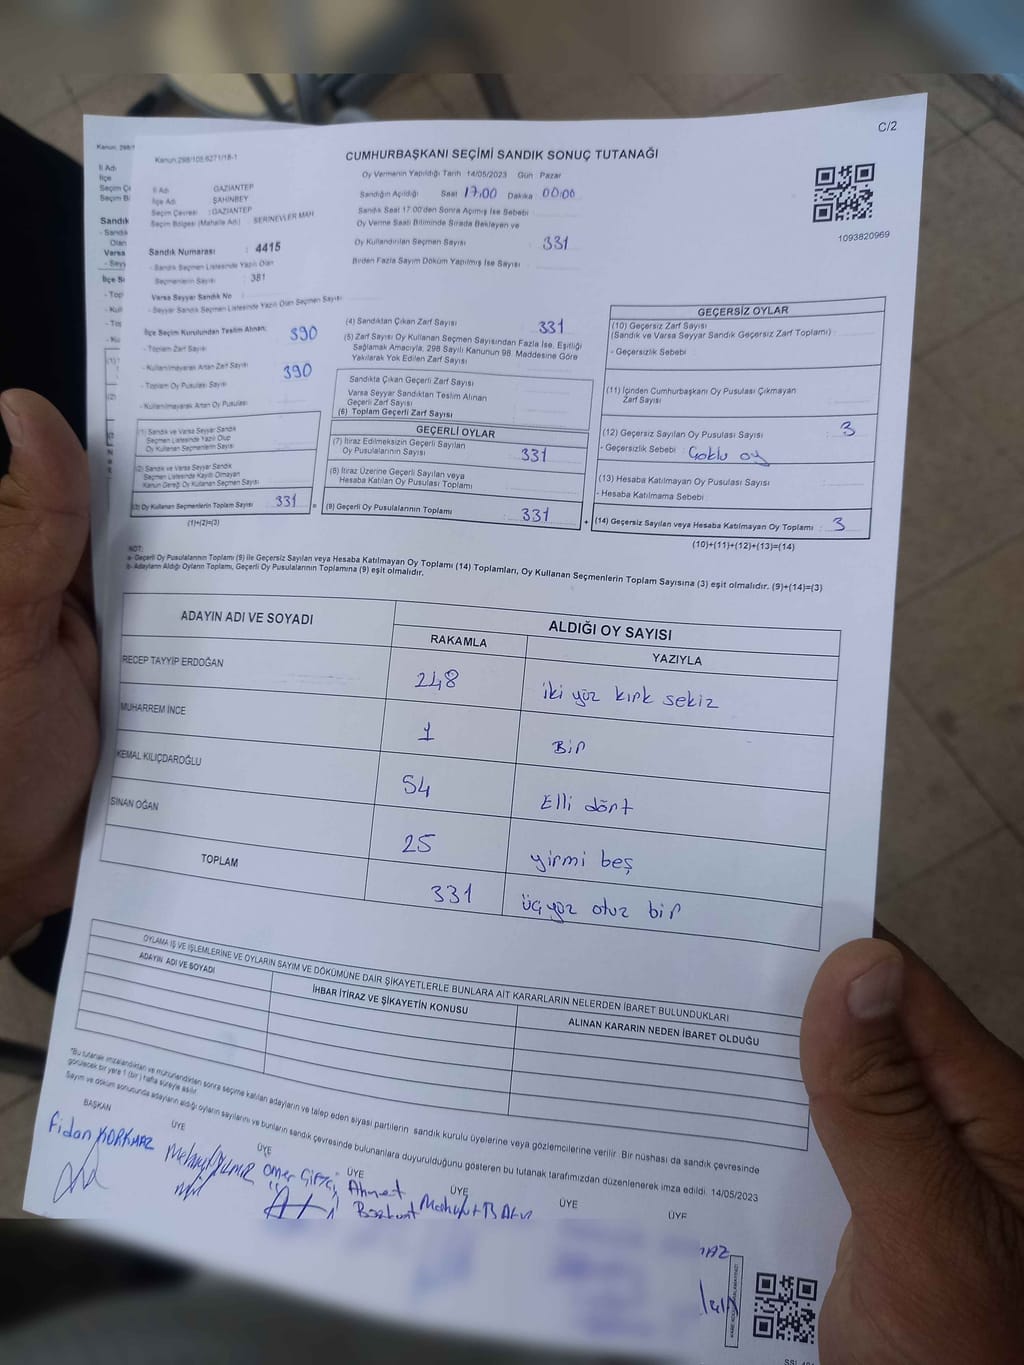 C/2
Kanun:298/105,6271/18-1
CUMHURBAŞKANI SEÇİMİ SANDIK SONUÇ TUTANAĞI
Oy Vermenin Yapıldığı Tarih 14/05/2023 Gün Pazar
İl Adı GAZİANTEP
İlçe Adı ŞAHİNBEY
Seçim Çevresi : GAZİANTEP
Seçim Bölgesi (Mahalle Adı) : SERİNEVLER MAH
Sandık Numarası : 4415
- Sandık Seçmen Listesinde Yazılı Olan
Seçmenlerin Sayısı : 381
Varsa Seyyar Sandık No
- Seyyar Sandık Seçmen Listesinde Yazılı Olan Seçmen Sayısı
Sandığın Açıldığı Saat 17.00 Dakika 00:00
Sandık Saat 17:00'den Sonra Açılmış İse Sebebi
Oy Verme Saati Bitiminde Sırada Bekleyen ve
Oy Kullandırılan Seçmen Sayısı 331
Birden Fazla Sayım Döküm Yapılmış İse Sayısı
1093820969
İlçe Seçim Kurulundan Teslim Alınan;
- Toplam Zarf Sayısı 390
- Kullanılmayarak Artan Zarf Sayısı
- Toplam Oy Pusulası Sayısı 390
- Kullanılmayarak Artan Oy Pusulası
(1) Sandık ve Varsa Seyyar Sandık
Seçmen Listesinde Yazılı Olup
Oy Kullanan Seçmenlerin Sayısı
(2) Sandık ve Varsa Seyyar Sandık
Seçmen Listesinde Kayıtlı Olmayan
Kanun Gereği Oy Kullanan Seçmen Sayısı
(3) Oy Kullanan Seçmenlerin Toplam Sayısı 331
(1)+(2)=(3)
(4) Sandıktan Çıkan Zarf Sayısı 331
(5) Zarf Sayısı Oy Kullanan Seçmen Sayısından Fazla İse, Eşitliği
Sağlamak Amacıyla, 298 Sayılı Kanunun 98. Maddesine Göre
Yakılarak Yok Edilen Zarf Sayısı
Sandıkta Çıkan Geçerli Zarf Sayısı
Varsa Seyyar Sandıktan Teslim Alınan
Geçerli Zarf Sayısı
(6) Toplam Geçerli Zarf Sayısı
GEÇERLİ OYLAR
(7) İtiraz Edilmeksizin Geçerli Sayılan
Oy Pusulalarının Sayısı 331
(8) İtiraz Üzerine Geçerli Sayılan veya
Hesaba Katılan Oy Pusulası Toplamı
= (9) Geçerli Oy Pusulalarının Toplamı : 331 +
GEÇERSİZ OYLAR
(10) Geçersiz Zarf Sayısı
(Sandık ve Varsa Seyyar Sandık Geçersiz Zarf Toplamı) :
- Geçersizlik Sebebi :
(11) İçinden Cumhurbaşkanı Oy Pusulası Çıkmayan
Zarf Sayısı
(12) Geçersiz Sayılan Oy Pusulası Sayısı : 3
- Geçersizlik Sebebi : Çoklu oy
(13) Hesaba Katılmayan Oy Pusulası Sayısı
- Hesaba Katılmama Sebebi
(14) Geçersiz Sayılan veya Hesaba Katılmayan Oy Toplamı : 3
(10)+(11)+(12)+(13)=(14)
NOT:
a- Geçerli Oy Pusulalarının Toplamı (9) ile Geçersiz Sayılan veya Hesaba Katılmayan Oy Toplamı (14) Toplamları, Oy Kullanan Seçmenlerin Toplam Sayısına (3) eşit olmalıdır. (9)+(14)=(3)
b- Adayların Aldığı Oyların Toplamı, Geçerli Oy Pusulalarının Toplamına (9) eşit olmalıdır.
ADAYIN ADI VE SOYADI ALDIĞI OY SAYISI
RAKAMLA YAZIYLA
RECEP TAYYİP ERDOĞAN 248 iki yüz kırk sekiz
MUHARREM İNCE 1 Bir
KEMAL KILIÇDAROĞLU 54 Elli dört
SİNAN OĞAN 25 yirmi beş
TOPLAM 331 üç yüz otuz bir
OYLAMA İŞ VE İŞLEMLERİNE VE OYLARIN SAYIM VE DÖKÜMÜNE DAİR ŞİKAYETLERLE BUNLARA AİT KARARLARIN NELERDEN İBARET BULUNDUKLARI
ADAYIN ADI VE SOYADI İHBAR İTİRAZ VE ŞİKAYETİN KONUSU ALINAN KARARIN NEDEN İBARET OLDUĞU
*Bu tutanak imzalandıktan ve mühürlendikten sonra seçime katılan adayların ve talep eden siyasi partilerin sandık kurulu üyelerine veya gözlemcilerine verilir. Bir nüshası da sandık çevresinde
görülecek bir yere 1 (bir) hafta süreyle asılır.
Sayım ve döküm sonucunda adayların aldığı oyların sayılarını ve bunların sandık çevresinde bulunanlara duyurulduğunu gösteren bu tutanak tarafımızdan düzenlenerek imza edildi. 14/05/2023
BAŞKAN ÜYE ÜYE ÜYE ÜYE ÜYE ÜYE
Fidan KORKMAZ Ömer Çiftçi Ahmet
Bozkurt